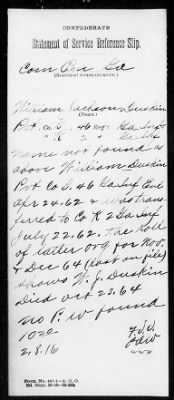 CONFEDERATE
Statement of Service Reference Slip.
Com Pen Ga
William Jackson Duskin
(Name.)
Pvt. Co. 46 Regt Ga Inf
" K 2 " Ga Inf
name not found as
above William Duskin
Pvt Co 46 Ga Inf Enl
Apr 24.62 & was trans
ferred to Co K 2 Ga Inf
July 22.62, the Roll
of latter org for Nov.
& Dec 64 (last on file)
shows W. J. Duskin
died Oct 23.64
no P.W found
1020
2.8.16